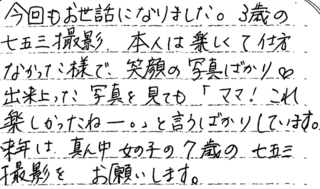 今回もお世話になりました。3歳の
七五三撮影、本人は楽しくて仕方
なかった様で、笑顔の写真ばかり♡
出来上った写真を見ても「ママ!これ
楽しかったねー。」と言うばかりしています。
来年は、真ん中女の子の7歳の七五三
撮影を お願いします。